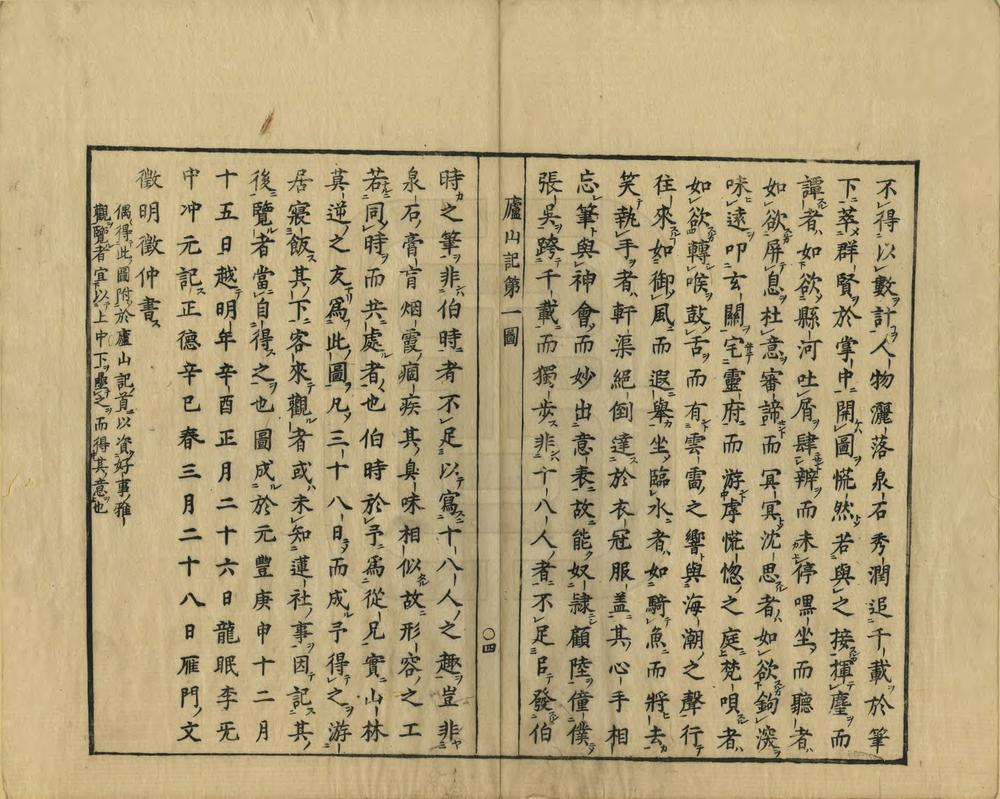 不得以數計人物灑落泉石秀潤追千載於筆
下萃群賢於掌中開圖慌然若與之接揮麈而
譚者如欲縣河吐屑肆辨而未停嘿坐而聽者
如欲屏息杜意審諦而冥冥沈思者如欲鉤深
味遠叩玄關宅靈府而游虖慌惚之庭梵唄者
如欲轉喉鼓舌而有雲雷之響與海潮之聲行
往來如御風而遐舉坐臨水者如騎魚而將去
笑執手者軒渠絕倒達於衣冠服蓋其心手相
忘筆與神會而妙出意表故能奴隷顧陸僮僕
張吳跨千載而獨步非十八人者不足㠯發伯
廬山記第一圖
〇四
時之筆非伯時者不足以寫十八人之趣豈非
泉石膏肓烟霞痼疾其臭味相似故形容之工
若同時而共處者也伯時於予為從兄實山林
莫逆之友爲此圖凡三十八日而成予得之游
居寢飯其下客來觀者或未知蓮社事因記其
後覽者當自得之也圖成於元豐庚申十二月
十五日越明年辛酉正月二十六日龍眠李旡
中冲元記正德辛巳春三月二十八日雁門文
徵明徵仲書
偶得此圖附於廬山記首以資好事雅
觀覽者宜以上中下疊之而得其意也